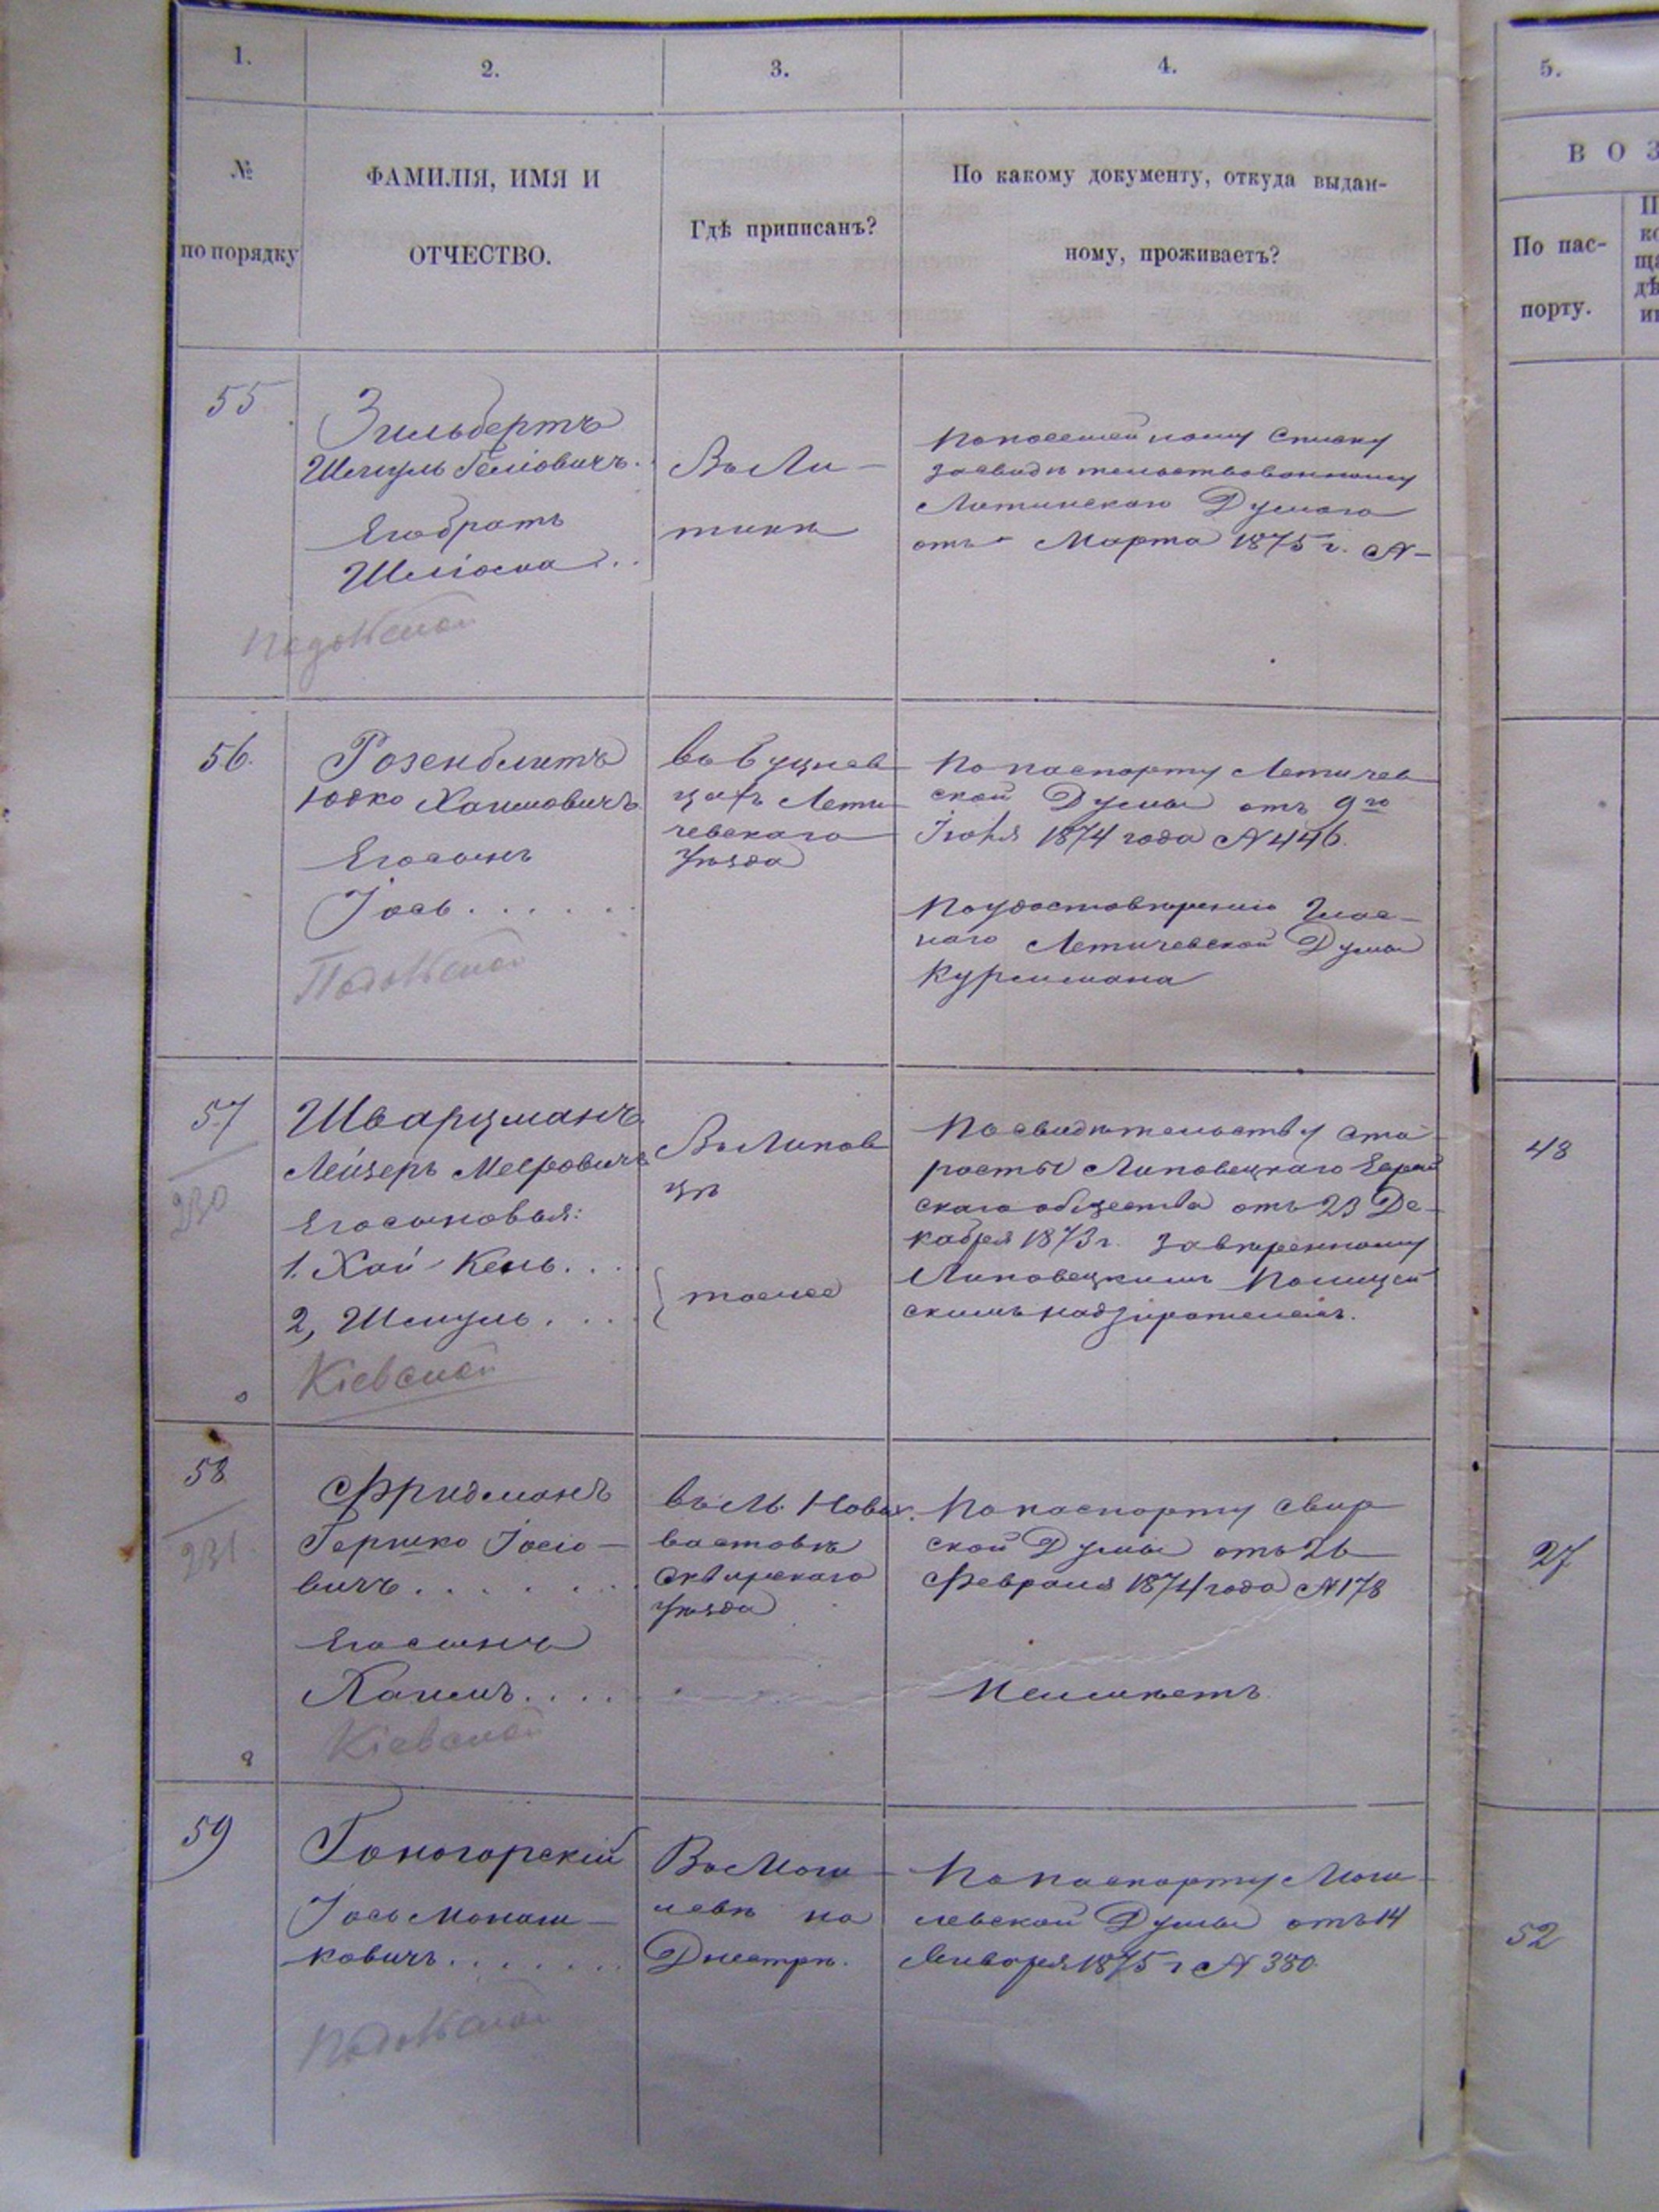 1.
2.
3.
4.
5.
№
по порядку
ФАМИЛІЯ, ИМЯ И
ОТЧЕСТВО.
Гдѣ приписанъ?
По какому документу, откуда выдан-
ному, проживаетъ?
ВОЗ
По пас-
порту.
55
Зильбертъ
Шмуль Геліовичъ.
Его братъ
Шліома...
Въ Ли-
тинѣ
По посемейному списку
засвидѣтельствованному
Литинскою Думою
отъ - Марта 1875 г. №-
56.
Розенблитъ
Юдко Хаимовичъ.
Его сынъ
Іось......
Подольской
въ Буцнев
цахъ Лети
чевскаго
Уѣзда
По паспорту Летичев
ской Думы отъ 9го
Іюня 1874 года №446.
По удостовѣренію Глас-
наго Летичевской Думы
57
230
Шварцманъ
Лейзеръ Меєровичъ
Его сыновья:
1. Хай-Кель...
2, Шмуль....
Кіевской
Въ Липов
цѣ
тоже
По свидѣтельству Ста
росты Липовецкаго Еврей
скаго общества отъ 23 Де-
кабря 1873 г. завѣренному
Липовецкимъ Полицей
скимъ надзирателемъ.
48
58
231
Фридманъ
Гершко Іосіо-
вичъ.......
Его сынъ
Хаимъ....
Кіевской
въ М.Ново
Сквирскаго
Уѣзда
По паспорту Сквир
ской Думы отъ 26
Февраля 1874 года №178
Неимѣетъ.
27
59
Гоногорскій
Іось Монаш-
ковичъ.......
Подольской
Въ Моги-
левѣ на
Днестрѣ.
По паспорту Моги-
левской Думы отъ 14
Января 1875 г № 380.
52